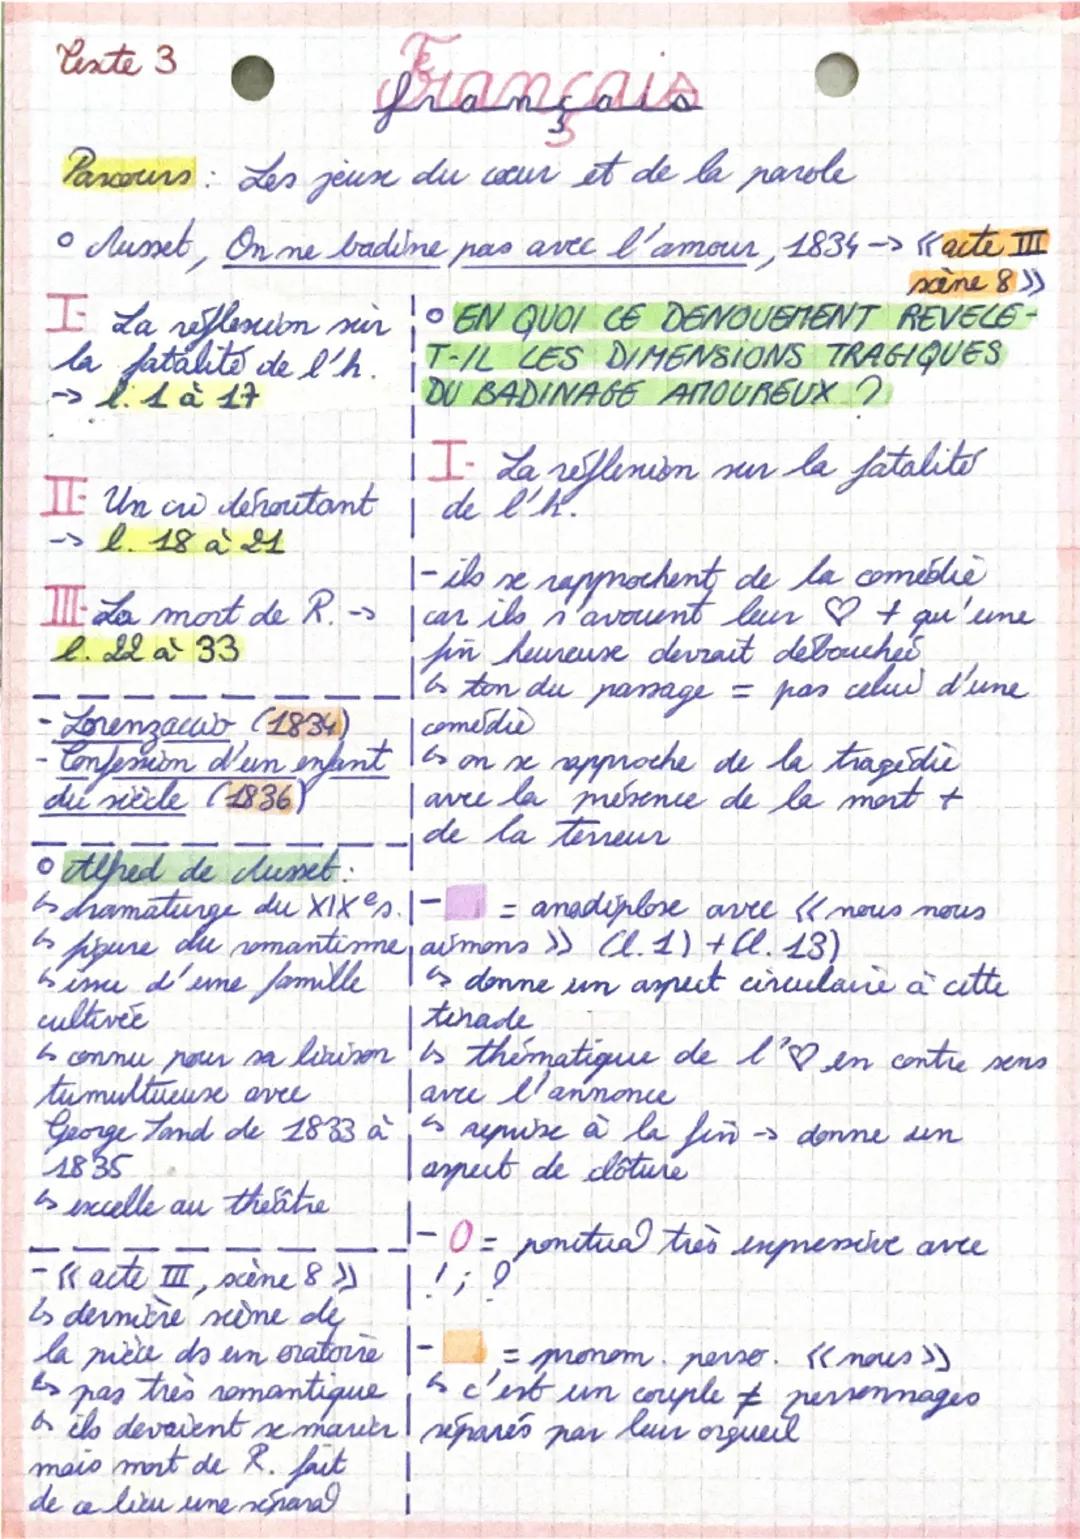 Texte 3
Français
français
Parcours : Les jeux du cœur et de la parole
o Musset, On ne badine pas avec l'amour, 1834 -> « acte III
scène 8 »
I- La réflexion sur
la fatalité de l'h.
-> l. 1 à 17
II- Un cri déroutant
-> l. 18 à 21
III- La mort de R. ->
l. 22 à 33
- Lorenzaccio (1834)
- Confession d'un enfant
du siècle (1836)
o Alfred de Musset :
↳ dramaturge du XIXe s.
↳ figure du romantisme
↳ issu d'une famille
cultivée
↳ connu pour sa liaison
tumultueuse avec
George Sand de 1833 à
1835
↳ excelle au théâtre
- « acte III, scène 8 »
↳ dernière scène de
la pièce ds un oratoire
↳ pas très romantique
↳ ils devaient se marier
mais mort de R. fait
de ce lieu une séparaº
o EN QUOI CE DENOUEMENT REVELE-
T-IL LES DIMENSIONS TRAGIQUES
DU BADINAGE AMOUREUX ?
I- La réflexion sur la fatalité
de l'h.
- ils se rapprochent de la comédie
car ils s'avouent leur ♡ + qu'une
fin heureuse devrait débouchée
↳ ton du passage = pas celui d'une
comédie
↳ on se rapproche de la tragédie
avec la présence de la mort +
de la terreur
- = anadiplose avec « nous nous
aimons » (l. 1) + (l. 13)
↳ donne un aspect circulaire à cette
tirade
↳ thématique de l'♡ en contre sens
avec l'annonce
↳ reprise à la fin -> donne un
aspect de clôture
- O = ponctuaº très expressive avec
! ; ?
- = pronom. perso. « nous »
↳ c'est un couple ≠ personnages
séparés par leur orgueil